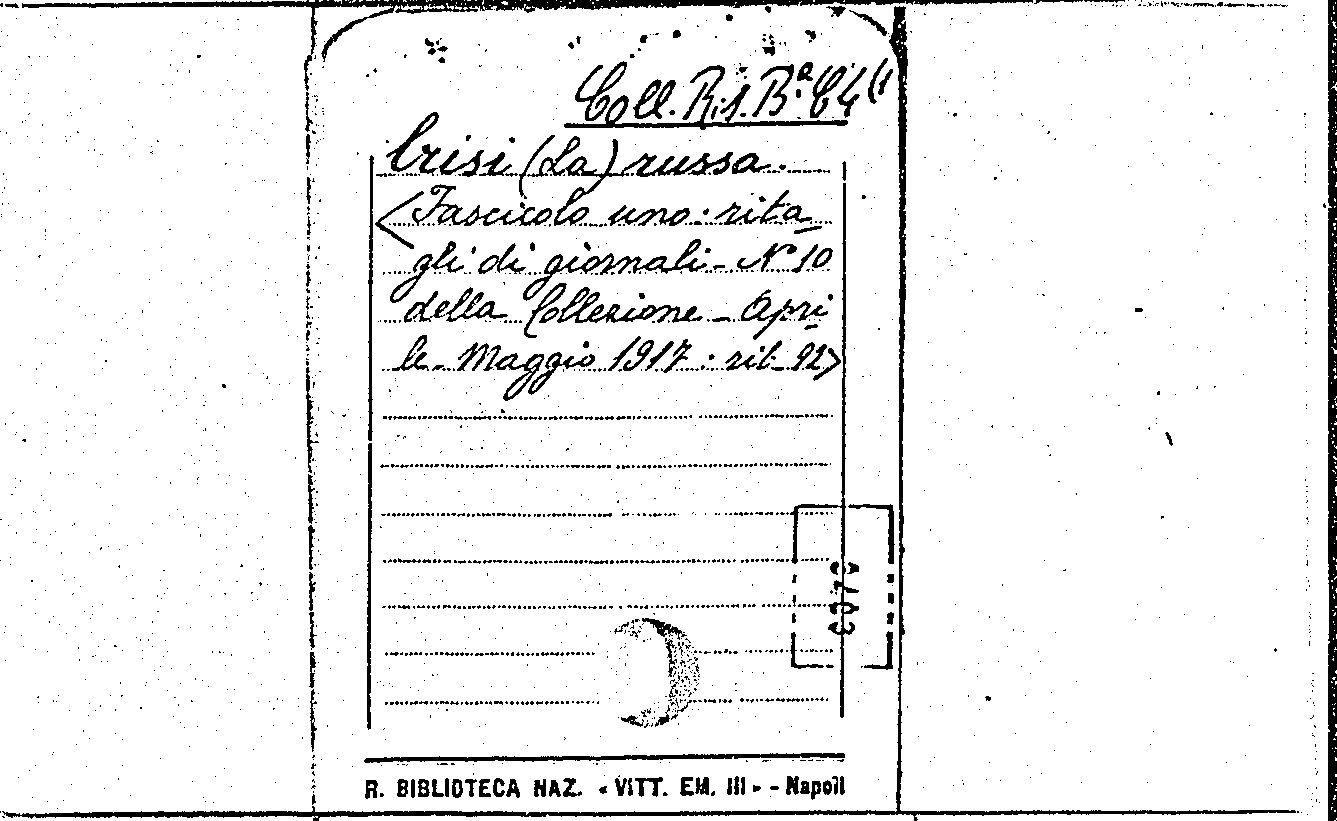 Coll. R.i.s. B.ª C4 (1
Crisi (La) russa.
<Fascicolo uno: rita
gli di giornali - N° 10
della Collezione - Apri
le - Maggio 1917 : rit. 92>
R. BIBLIOTECA NAZ. « VITT. EM. III » - Napoli